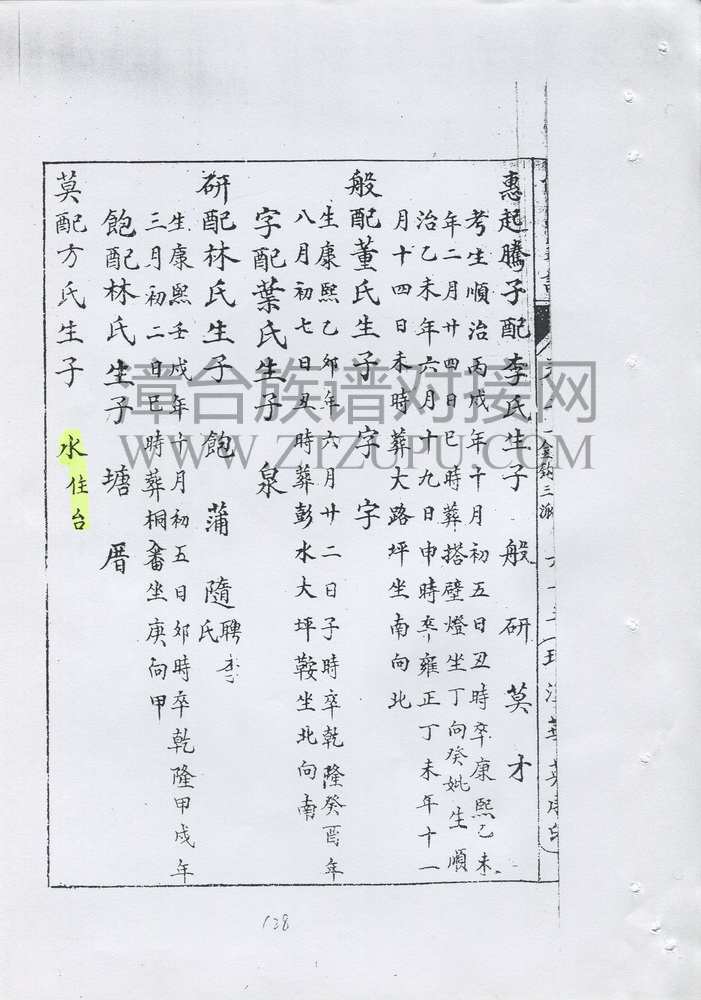 惠起騰子配李氏生子　般　研　莫　才
考生順治丙戌年十月初五日丑時卒康熙乙未
年二月廿四日巳時葬搭壁燈坐丁向癸妣生順
治乙未年六月十九日申時卒雍正丁未年十一
月十四日未時葬大路坪坐南向北
般配董氏生子　字　字
生康熙乙卯年六月廿二日子時卒乾隆癸酉年
八月初七日丑時葬彭水大坪鞍坐北向南
字配葉氏生子　泉
研配林氏生子　飽　蒲　隨聘李氏
生康熙壬戌年十月初五日卯時卒乾隆甲戌年
三月初二日巳時葬桐畬坐庚向甲
飽配林氏生子　塘　厝
莫配方氏生子　水住台
金鈎三派
漳台族谱对接网
WWW.ZTZUPU.COM
138